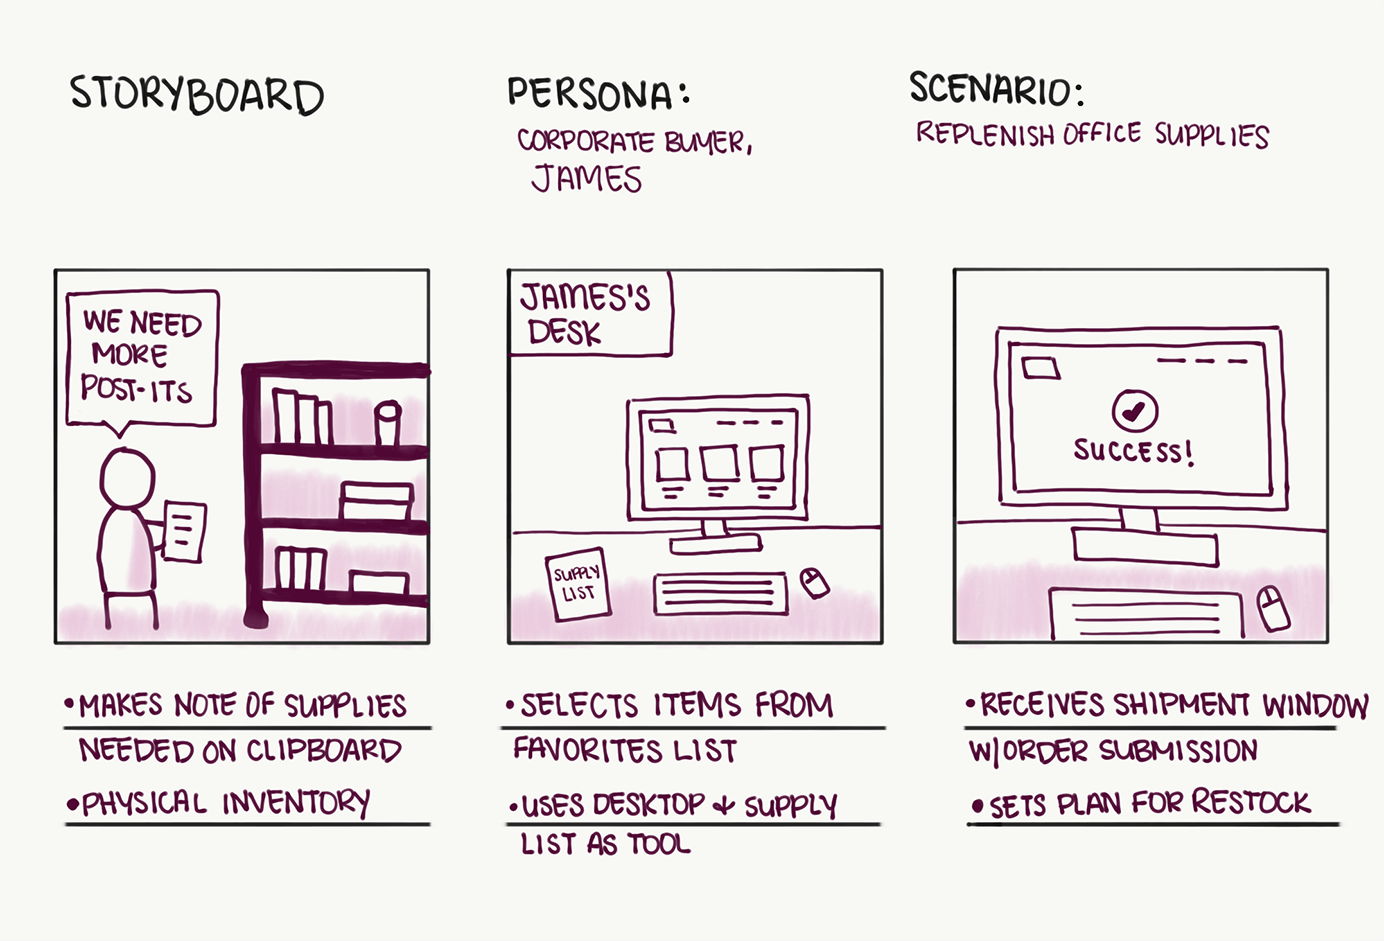 STORYBOARD
PERSONA:
CORPORATE BUYER,
JAMES
SCENARIO:
REPLENISH OFFICE SUPPLIES
WE NEED
MORE
POST-ITS
• MAKES NOTE OF SUPPLIES
NEEDED ON CLIPBOARD
• PHYSICAL INVENTORY
JAMES'S
DESK
SUPPLY
LIST
• SELECTS ITEMS FROM
FAVORITES LIST
• USES DESKTOP + SUPPLY
LIST AS TOOL
SUCCESS!
• RECEIVES SHIPMENT WINDOW
W/ORDER SUBMISSION
• SETS PLAN FOR RESTOCK